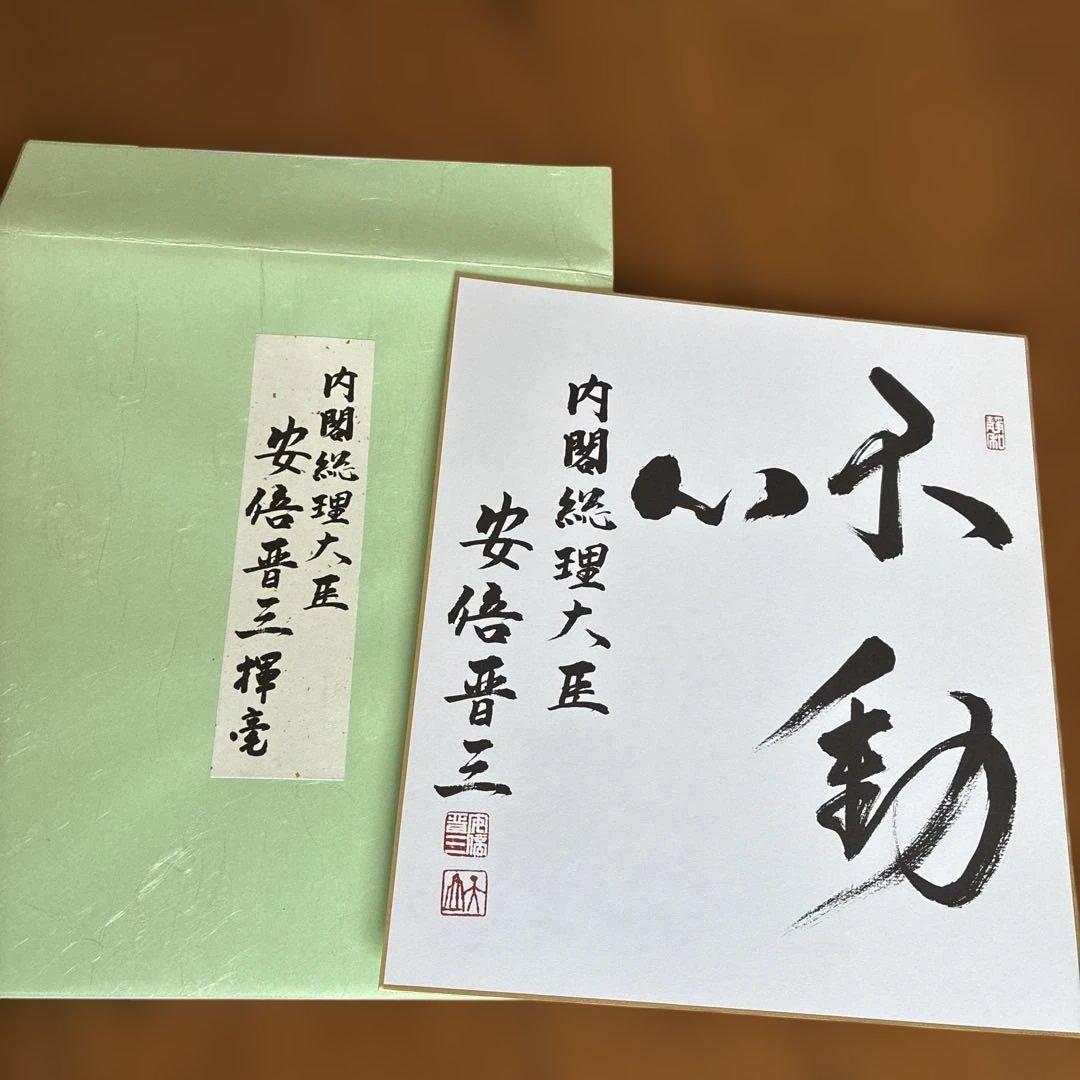 内閣総理大臣
安倍晋三揮毫
不動
心
内閣総理大臣
安倍晋三
安倍
晋三